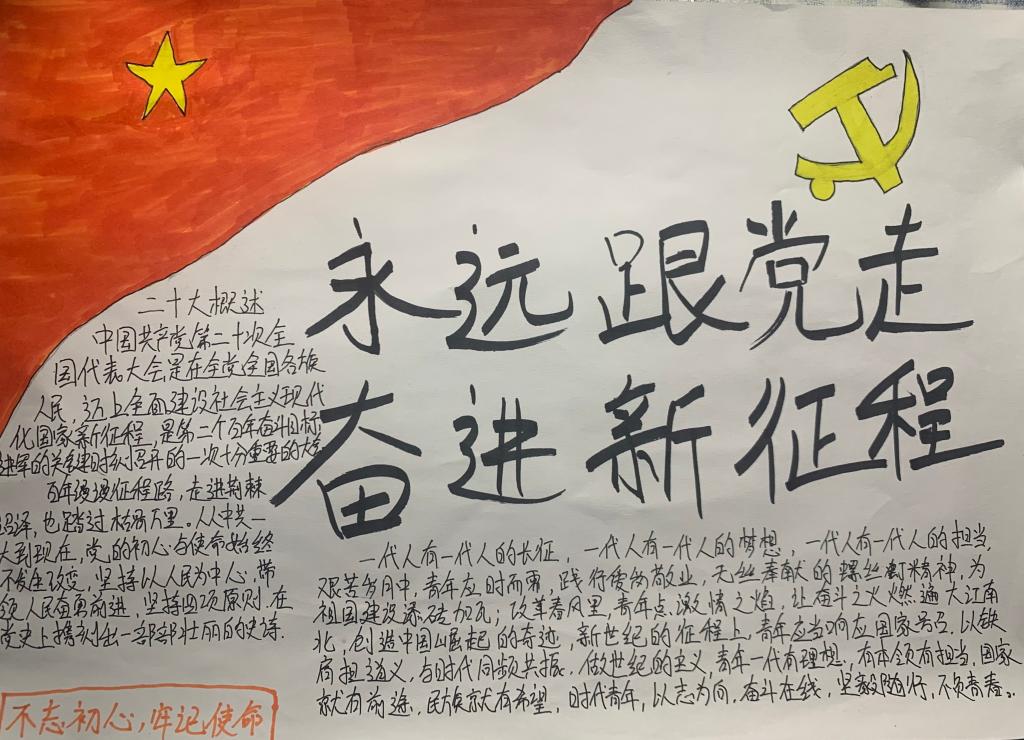 永远跟党走
奋进新征程
二十大概述
中国共产党第二十次全
国代表大会是在全党全国各族
人民,迈上全面建设社会主义现代
化国家新征程,是第二个百年奋斗目标
进军的关键时刻召开的一次十分重要的大会
百年漫漫征程路,走进荆棘
沼泽,也踏过枯骨万里。从中共一
大到现在,党的初心与使命始终
不发生改变,坚持以人民为中心,带
领人民奋勇前进,坚持四项原则,在
党史上镌刻出一部部壮丽的史诗.
一代人有一代人的长征,一代人有一代人的梦想,一代人有一代人的担当,
艰苦岁月中,青年应时而需,践行爱岗敬业,无丝奉献的螺丝钉精神,为
祖国建设添砖加瓦;改革春风里,青年点激情之焰,让奋斗之火燃遍大江南
北,创造中国崛起的奇迹,新世纪的征程上,青年应当响应国家号召,以铁
肩担道义,与时代同频共振,做世纪的主义,青年一代有理想,有本领有担当,国家
就有前途,民族就有希望,时代青年,以志为向,奋斗在线,坚毅随行,不负青春。
不忘初心,牢记使命